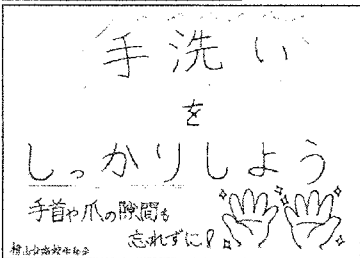 手洗い
を
しっかりしよう
手首や爪の隙間も
忘れずに!